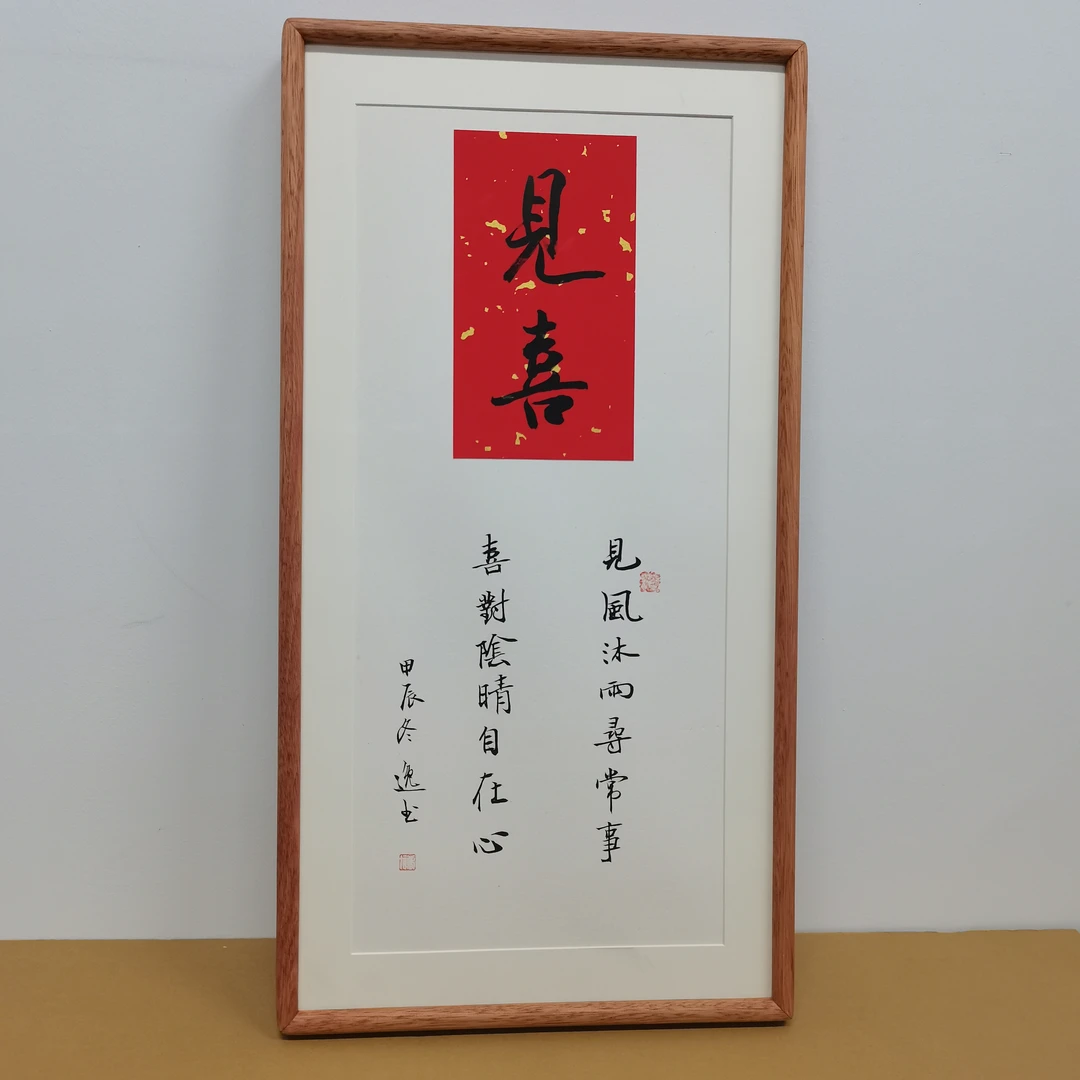 見喜
見風沐雨尋常事
喜對陰晴自在心
甲辰冬逸书